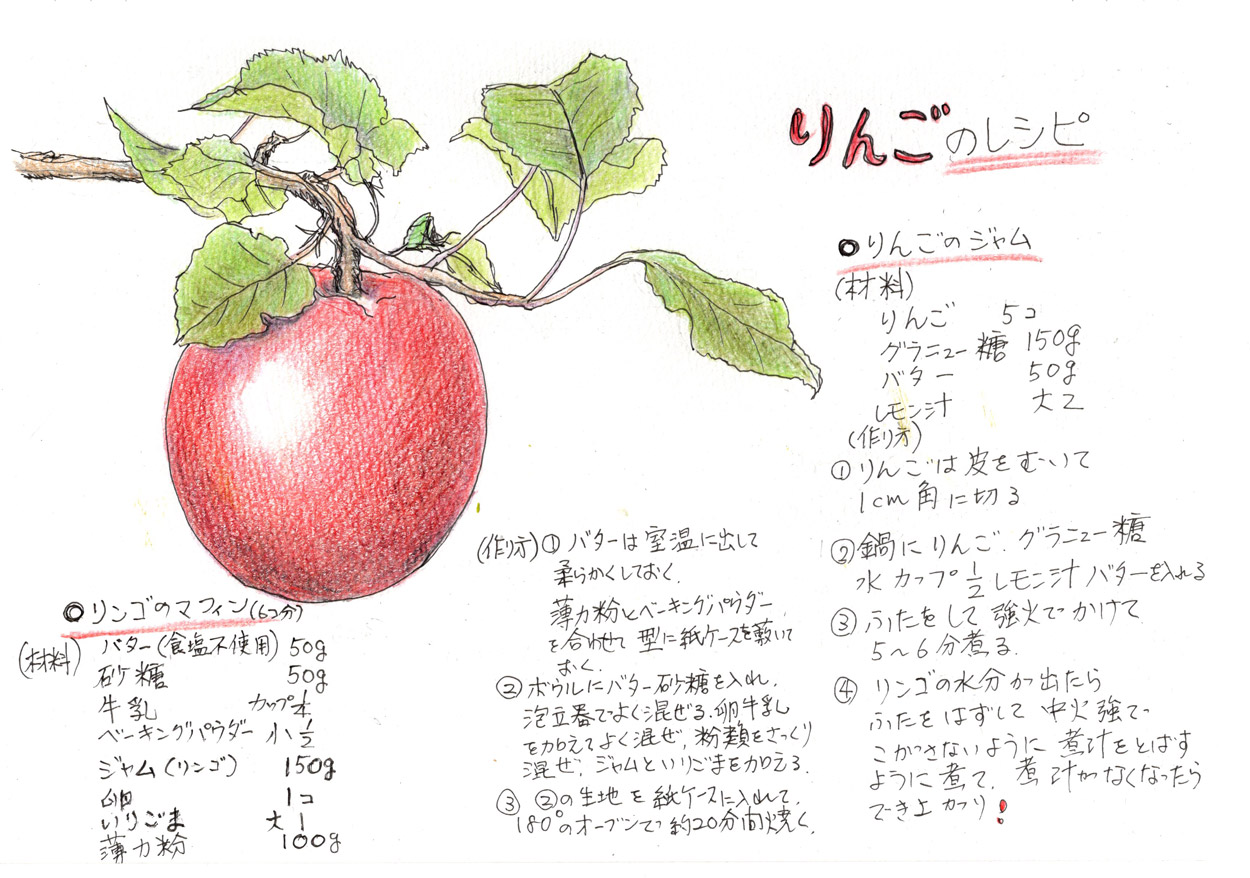 りんごのレシピ
◎りんごのジャム
(材料)
りんご 5コ
グラニュー糖 150g
バター 50g
レモン汁 大2
(作り方)
①りんごは皮をむいて
1cm角に切る
②鍋にりんご、グラニュー糖
水カップ1/2レモン汁バターを入れる
③ふたをして強火でかけて
5～6分煮る.
④リンゴの水分が出たら
ふたをはずして中火強で
こがさないように煮汁をとばす
ように煮て、煮汁がなくなったら
でき上がり!
◎リンゴのマフィン(6コ分)
(材料) バター(食塩不使用) 50g
砂糖 50g
牛乳 カップ1/4
ベーキングパウダー 小1/2
ジャム(リンゴ) 150g
卵 1コ
いりごま 大1
薄力粉 100g
(作り方)①バターは室温に出して
柔らかくしておく.
薄力粉とベーキングパウダー
を合わせて型に紙ケースを敷いて
おく.
②ボウルにバター砂糖を入れ.
泡立器でよく混ぜる.卵牛乳
を加えてよく混ぜ,粉類をさっくり
混ぜ,ジャムといりごまを加える.
③②の生地を紙ケースに入れて.
180°のオーブンで約20分間焼く.